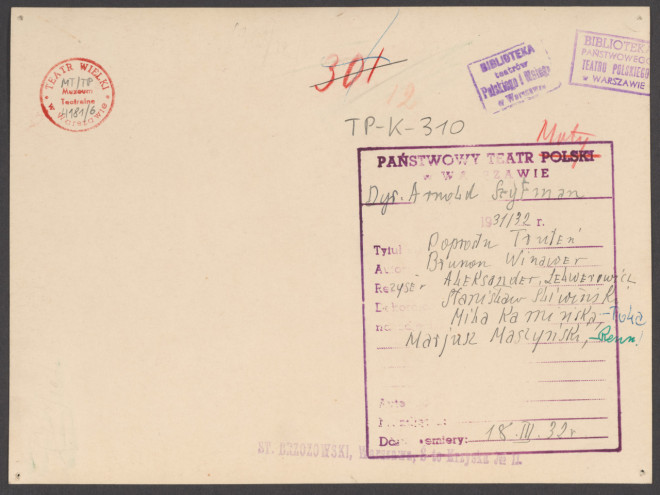 TEATR WIELKI
MT/TP
Muzeum
Teatralne
W Warszawie
301
12
BIBLIOTEKA
teatrów
Polskiego i Małego
w Warszawie
BIBLIOTEKA
PAŃSTWOWEGO
TEATRU POLSKIEGO
w WARSZAWIE
TP-K-310
Mały
PAŃSTWOWY TEATR POLSKI
w WARSZAWIE
Dyr. Arnold Szyfman
1931/32 r.
Tytuł Poprostu Truteń
Autor Brunon Winawer
Reżyser Aleksander Zelwerowicz
Stanisław Śliwiński
Miha Kamińska,
Marjusz Maszyński,
Data premiery: 18.III.32 r
ST. BRZOZOWSKI, Warszawa,